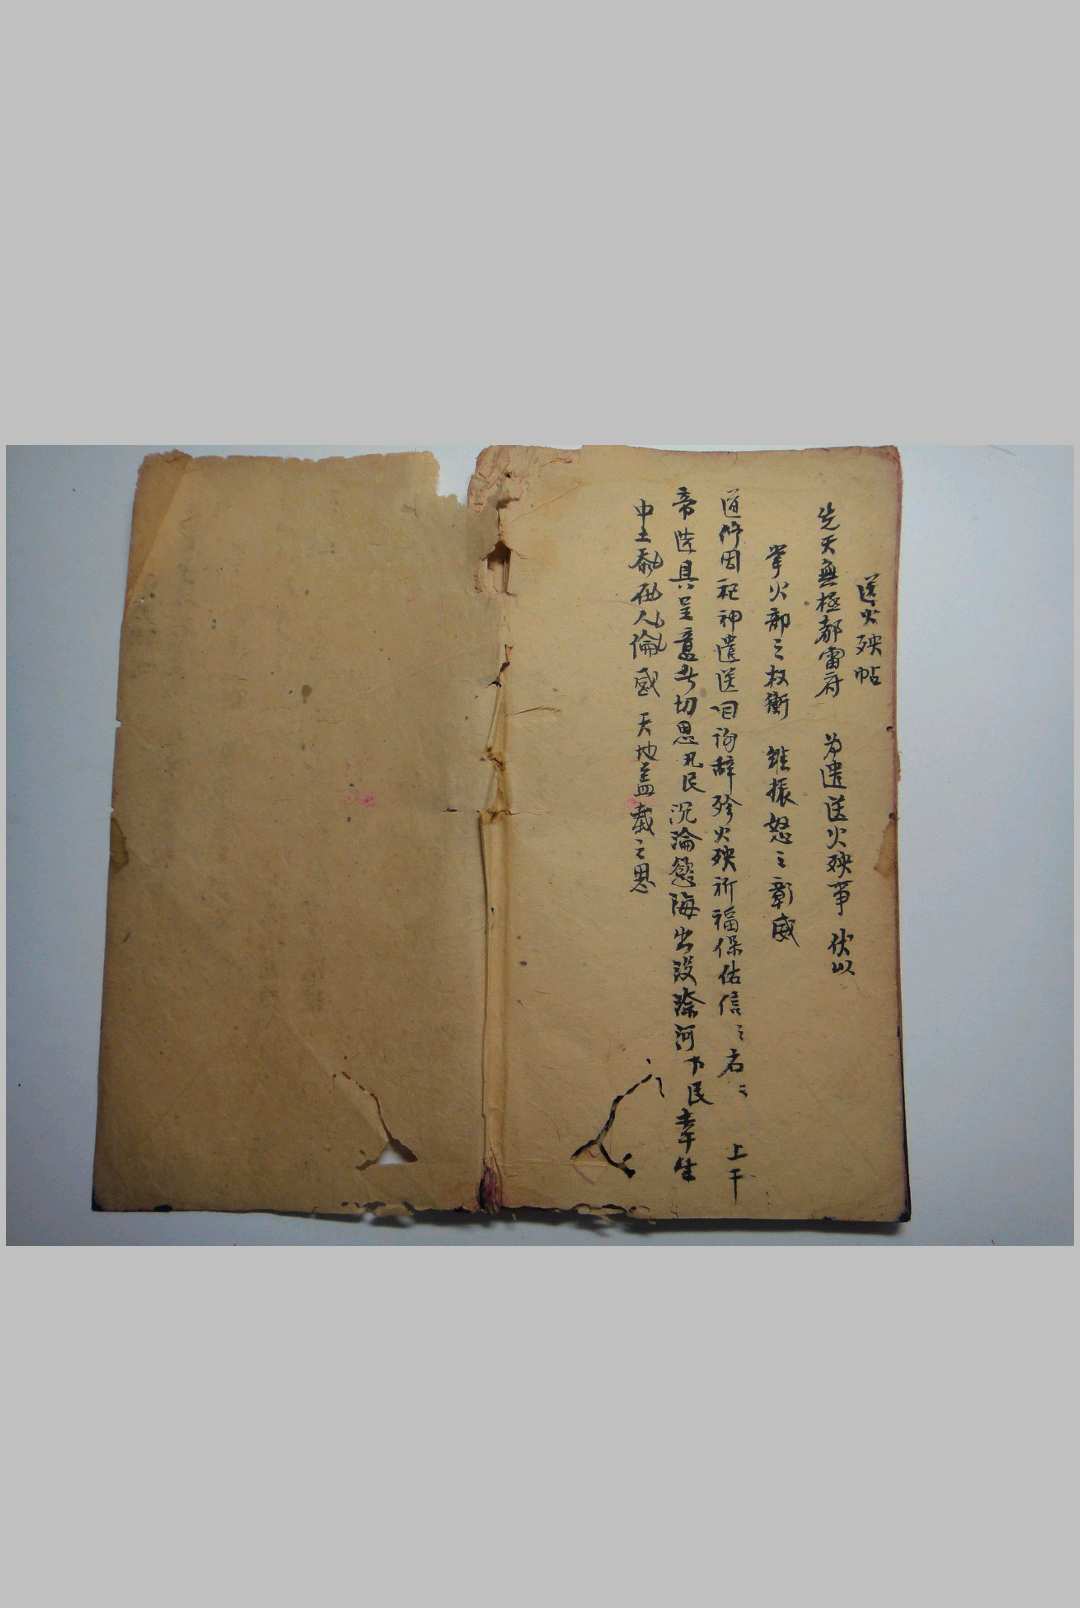 送火殃帖
先天無極都雷府 為遣送火殃事 伏以
掌火部之权衡 雖振怒之彰威
道修因祀神遣送回辞殄火殃祈福保佑信〻右〻 上干
帝造具呈意者切思凡民沉淪慾海出没滁河下民幸生
中土忝在人倫感 天地盖載之恩